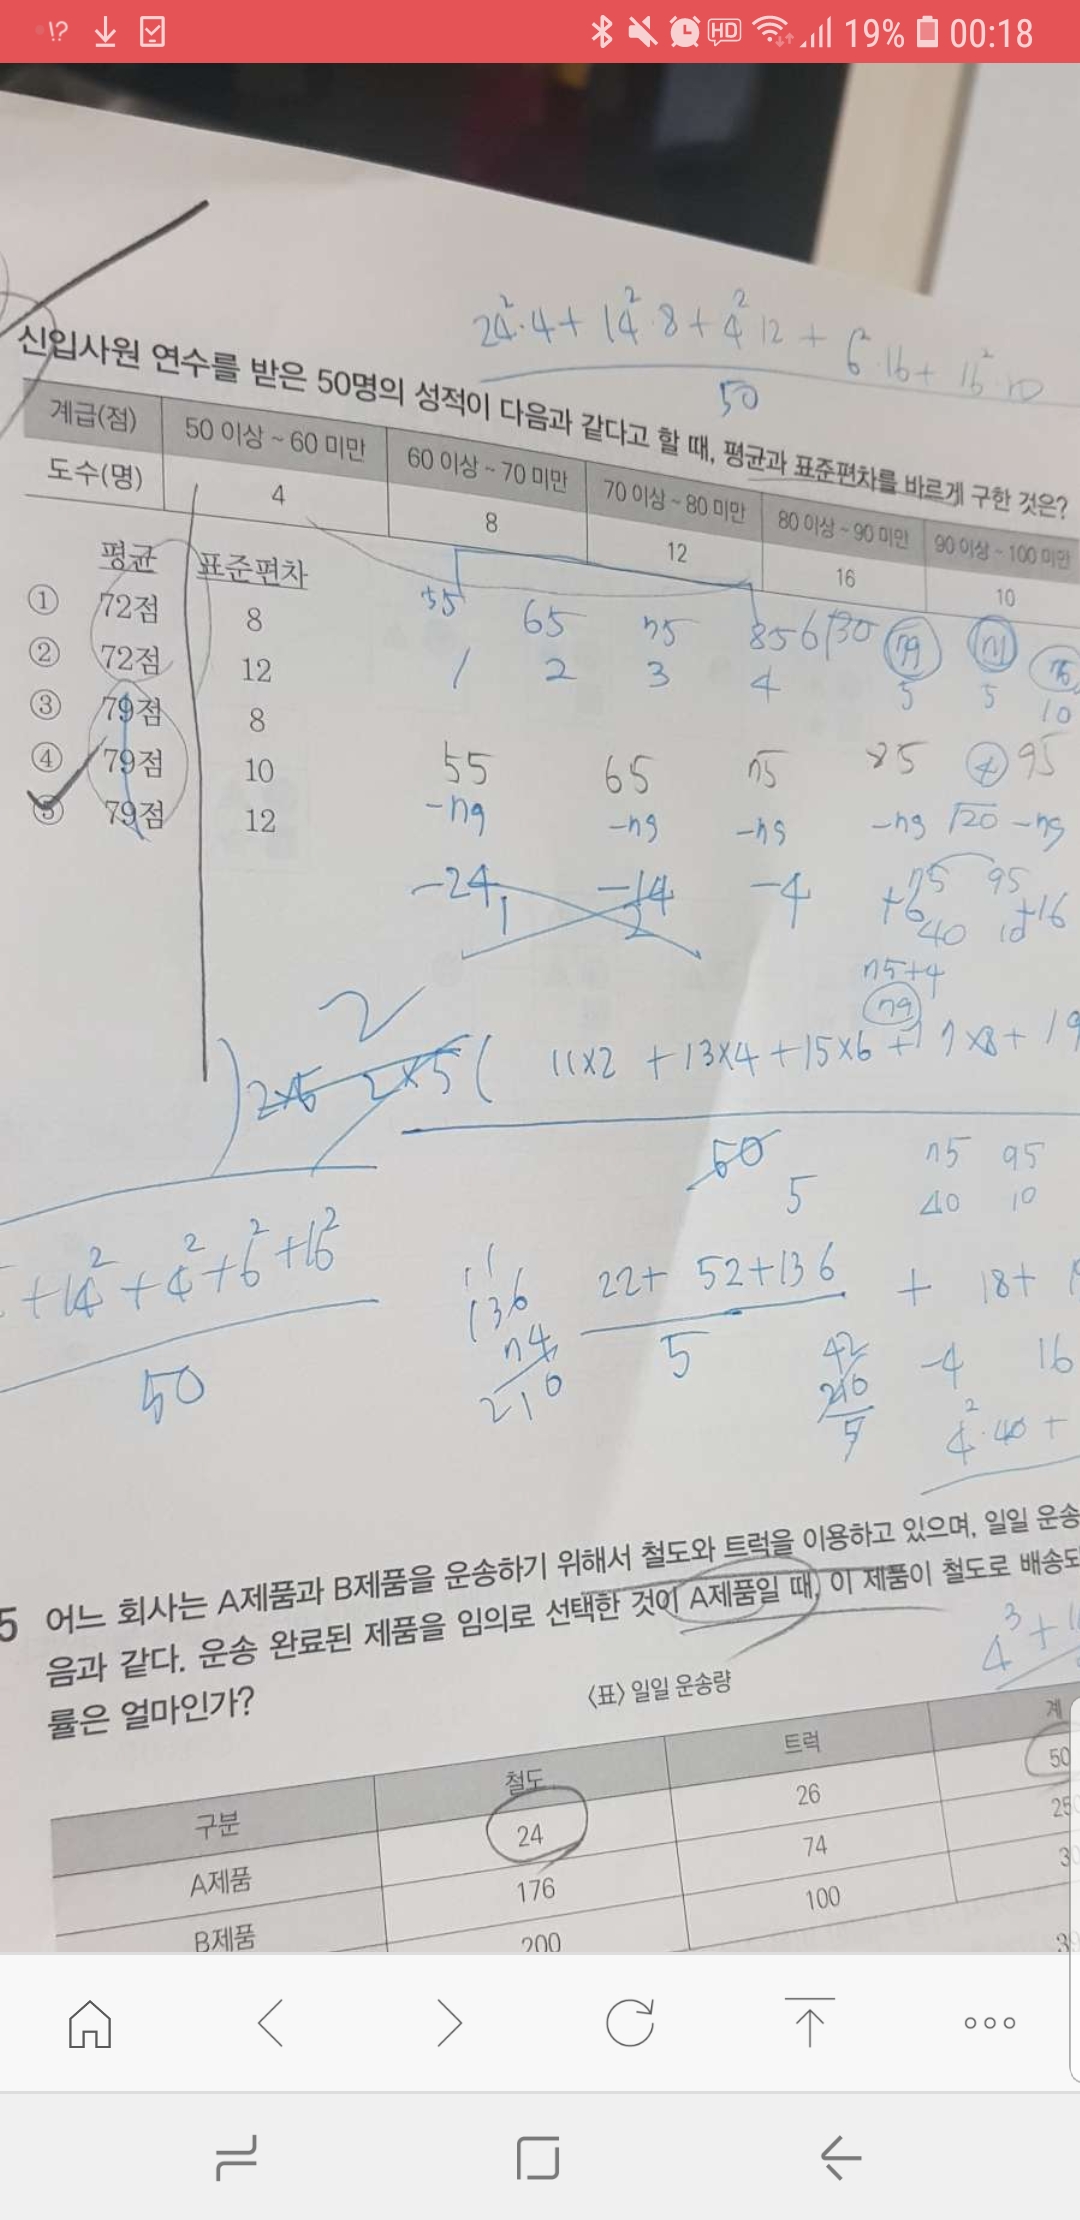 19% 00:18
24²·4+ 14²·8+4²12+6²·16+16²·10
50
신입사원 연수를 받은 50명의 성적이 다음과 같다고 할 때, 평균과 표준편차를 바르게 구한 것은?
계급(점) 50 이상 ~ 60 미만 60 이상 ~ 70 미만 70 이상 ~ 80 미만 80 이상 ~ 90 미만 90 이상 ~ 100 미만
도수(명) 4 8 12 16 10
평균 표준편차
① 72점 8
② 72점 12
③ 79점 8
④ 79점 10
⑤ 79점 12
55 65 75 85
1 2 3 4 5 5 10
55 65 75 85 95
-79 -79 -79 -79 √20 -79
-24 -14 -4 +6 +16
1 2
75 95
40 10
75+4
79
2
2×5 ( 11×2 +13×4+15×6+17×8+ 19
50
5
75 95
40 10
+14²+4²+6²+16²
50
11
136
74
210
22+ 52+136 + 18+
5
42
210
5
-4 16
4²·40 +
5 어느 회사는 A제품과 B제품을 운송하기 위해서 철도와 트럭을 이용하고 있으며, 일일 운송
음과 같다. 운송 완료된 제품을 임의로 선택한 것이 A제품일 때, 이 제품이 철도로 배송되
률은 얼마인가?
4³+
〈표〉 일일 운송량
구분 철도 트럭 계
A제품 24 26 50
B제품 176 74 25
200 100 3